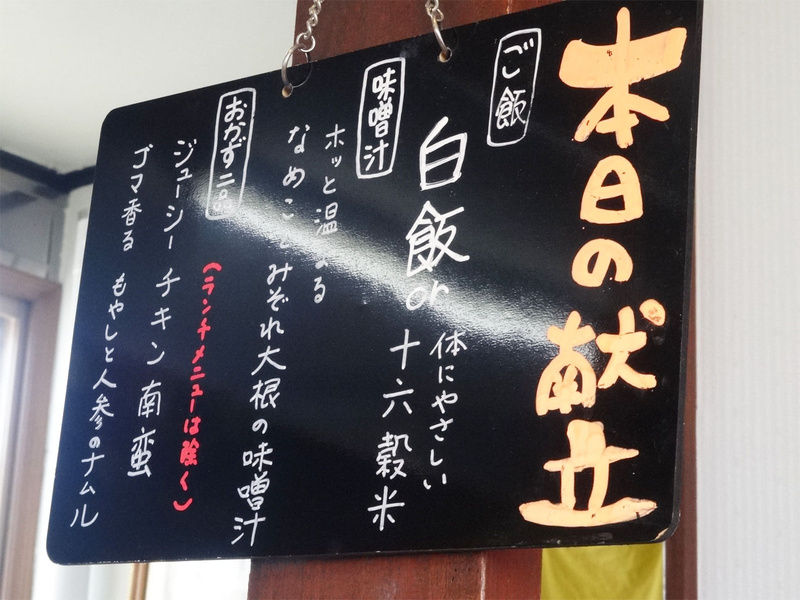 本日の献立
ご飯
白飯 or
体にやさしい
十六穀米
味噌汁
ホッと温まる
なめことみぞれ大根の味噌汁
おかず二品
(ランチメニューは除く)
ジューシーチキン南蛮
ゴマ香る もやしと人参のナムル